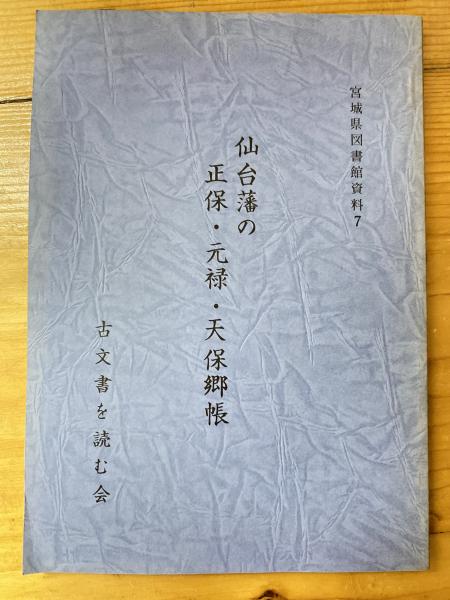 宮城県図書館資料7
仙台藩の
正保・元禄・天保郷帳
古文書を読む会